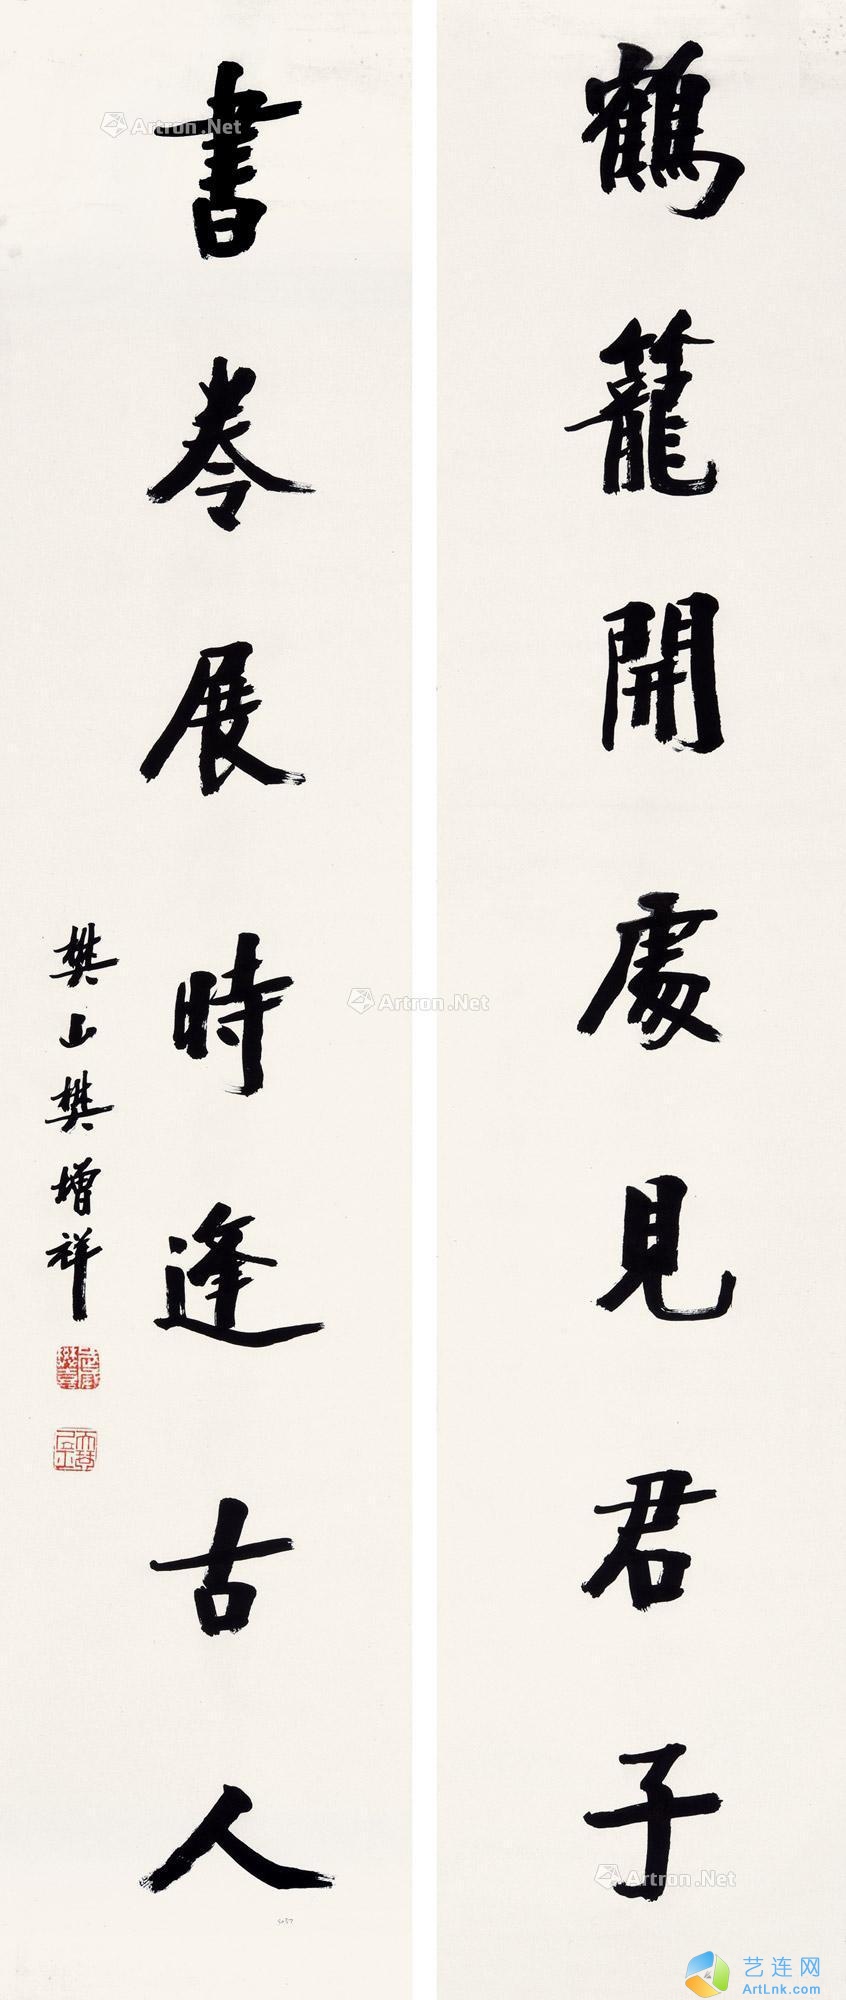 鶴籠開處見君子
書卷展時逢古人
樊山樊增祥
Artron.Net
Artron.Net
Artron.Net
艺连网
ArtLnk.com